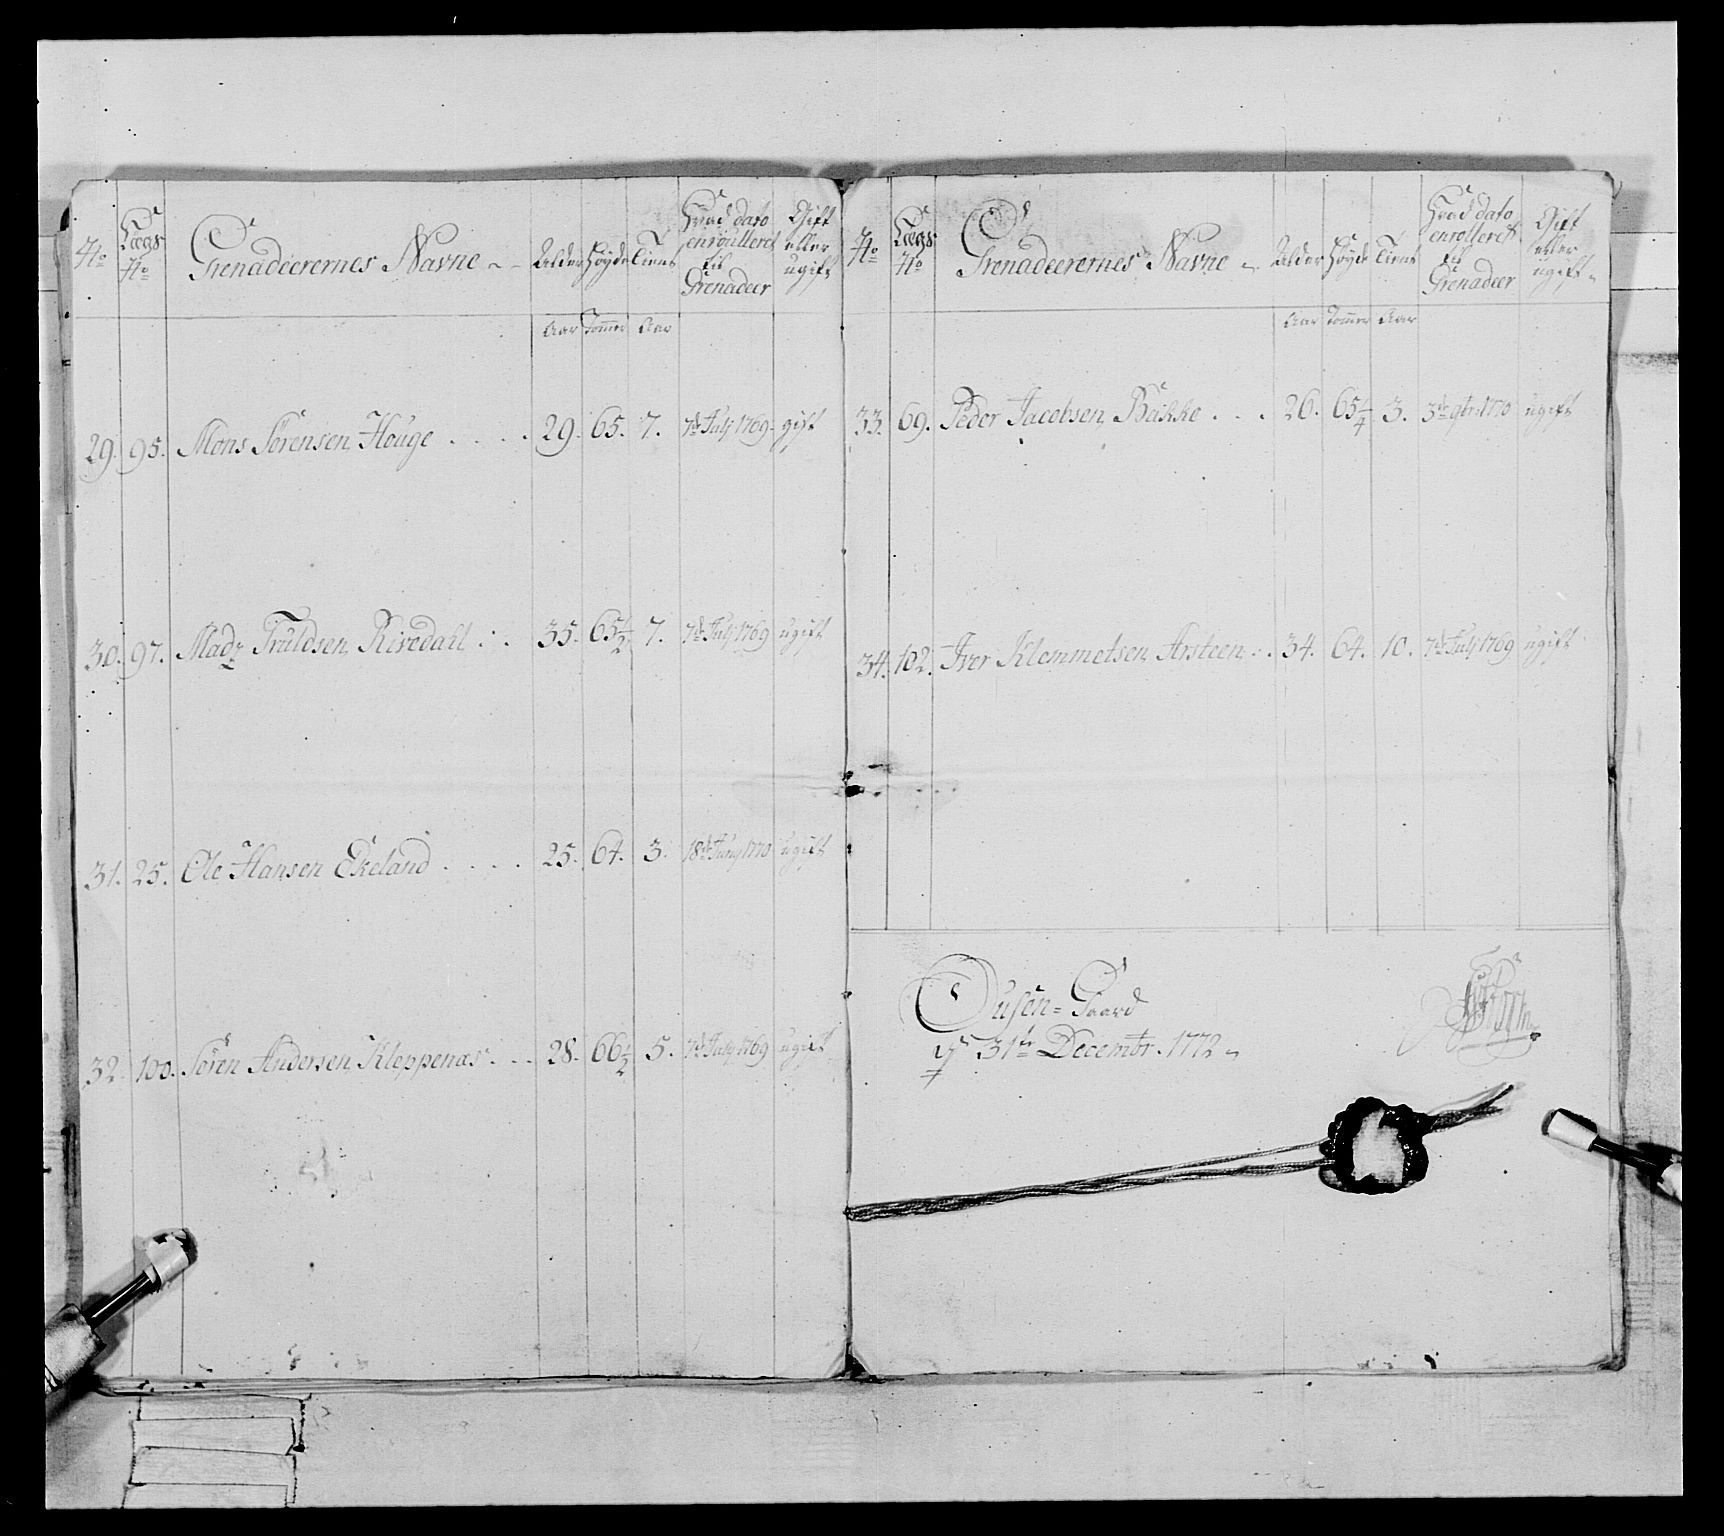 No Lægs No Grenadeerernes Navne Alder Høyde Tient Hvad dato enroulleret til Grenadeer Gift eller ugift
Aar Tommer Aar
29. 95. Mons Sørensen Houge . . . . 29. 65. 7. 7de July 1769. gift
30. 97. Madz Truldsen Risedahl . . 35. 65 1/2 7. 7de July 1769 ugift
31. 25. Ole Hansen Ekeland . . . . 25. 64. 3. 18de Juny 1770 ugift
32. 100. Søren Andersen Kleppenæs . . . 28. 66 1/2 5. 7de July 1769 ugift
No Lægs No Grenadeerernes Navne Alder Høyde Tient Hvad dato enrolleret til Grenadeer Gift eller ugift
Aar Tommer Aar
33. 69. Peder Jacobsen Bakke . . . 26. 65 1/4 3. 3die 9br. 1770 ugift
34. 102. Iver Klemmetsen Arsteen . . 34. 64. 10. 7de July 1769 ugift
Dusen=Gaard
31te Decembr. 1772